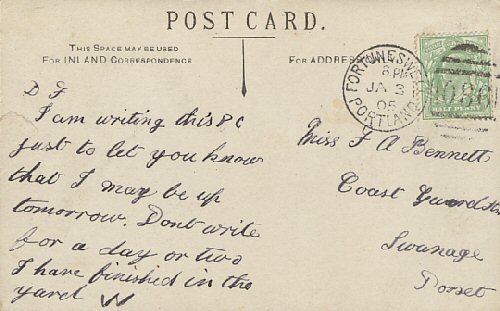 POST CARD.
THIS SPACE MAY BE USED
FOR INLAND CORRESPONDENCE
FOR ADDRESS
FORTUNESWELL
8 PM
JA 3
05
PORTLAND
HALF PENNY
D F
I am writing this P C
just to let you know
that I may be up
tomorrow. Dont write
for a day or two
I have finished in the
yard W
Miss F A Bennett
Coast Guard Stn
Swanage
Dorset